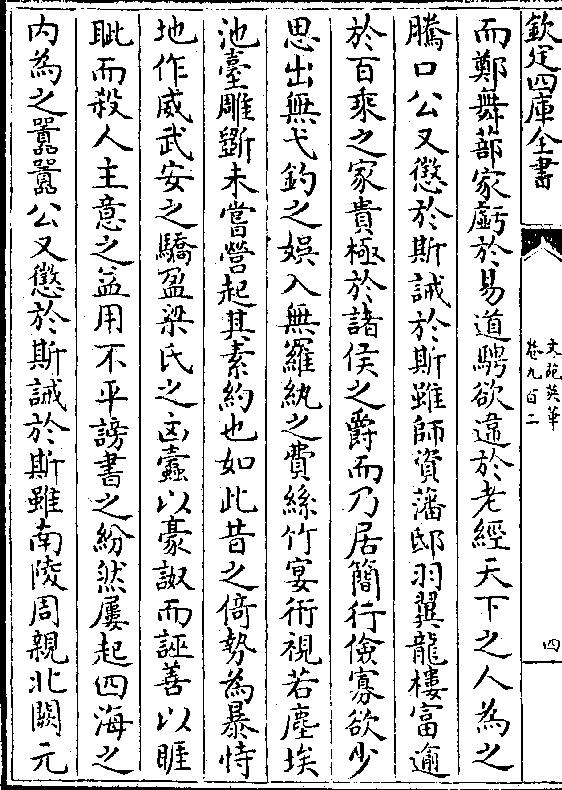 欽定四庫全書
文苑英華
卷九百二
四
而鄭舞蔀家虧於易道騁欲違於老經天下之人為之
騰口公又懲於斯誡於斯雖師資藩邸羽翼龍樓富逾
於百乘之家貴極於諸侯之爵而乃居簡行儉寡欲少
思出無弋釣之娛入無羅紈之費絲竹宴衎視若塵埃
池臺雕斵未嘗營起其素約也如此昔之倚勢為暴恃
地作威武安之驕盈梁氏之凶蠹以豪諔而誣善以睚
眦而殺人主意之益用不平謗書之紛然屢起四海之
内為之嚣嚣公又懲於斯誡於斯雖南陵周親北闕元